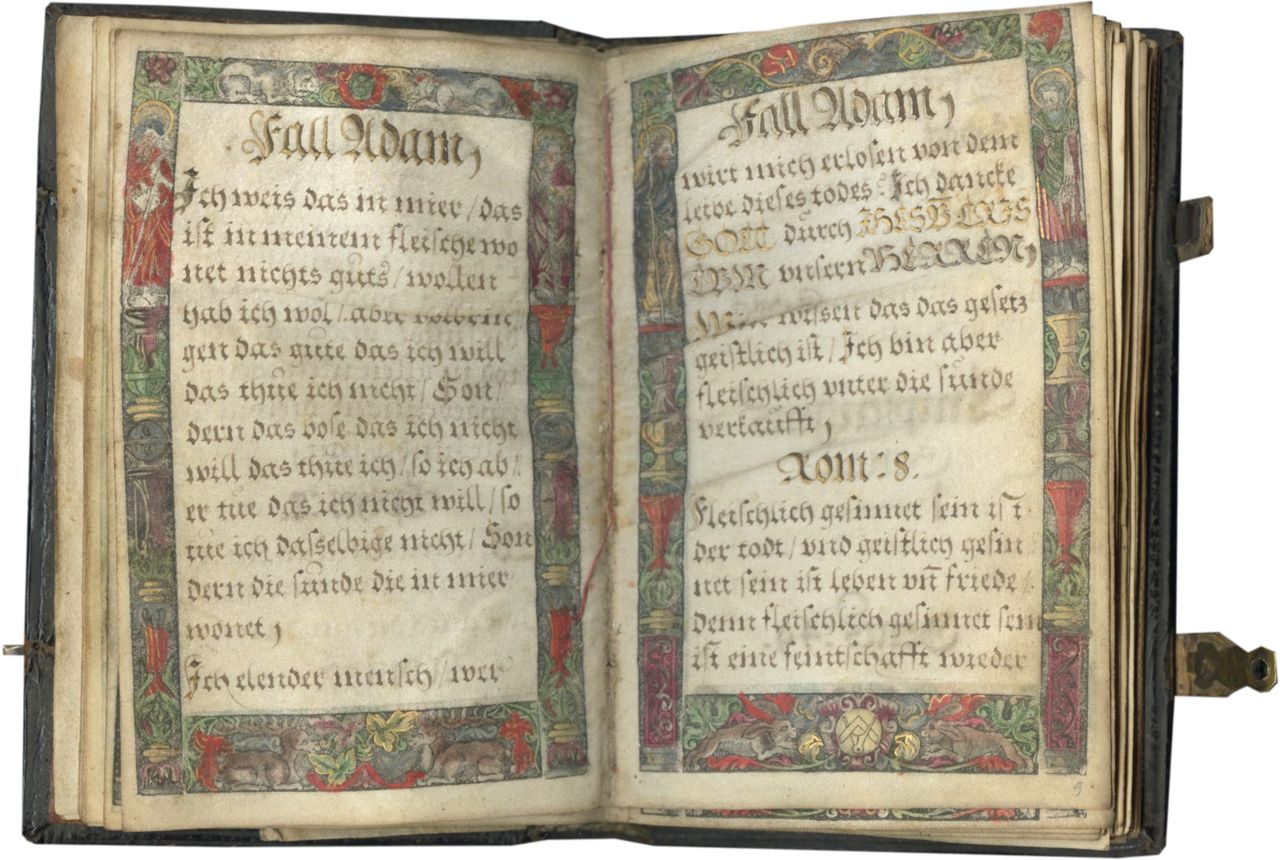 Fall Adam,
Ich weis das in mier / das
ist in meinem fleische wo
net nichts guts / wollen
hab ich wol / aber volbrin,
gen das gute das ich will
das thue ich nicht / Son /
dern das böse das ich nicht
will das thue ich / so ich ab /
er tue das ich nicht will / so
tue ich dasselbige nicht / Son
dern die sunde die in mier
wonet,
Ich elender mensch / wer
Fall Adam,
wirt mich erlosen von dem
leibe dieses todes? Ich dancke
GOTT durch IHESVM CRIS
TVM vnsern HERREN,
Wir wissen das das gesetz
geistlich ist / Ich bin aber
fleischlich vnter die sunde
verkaufft,
Rom: 8.
Fleischlich gesinnet sein ist
der todt / vnd geistlich gesin
net sein ist leben vn̄ friede /
denn fleischlich gesinnet sein
ist eine feintschafft wieder
9